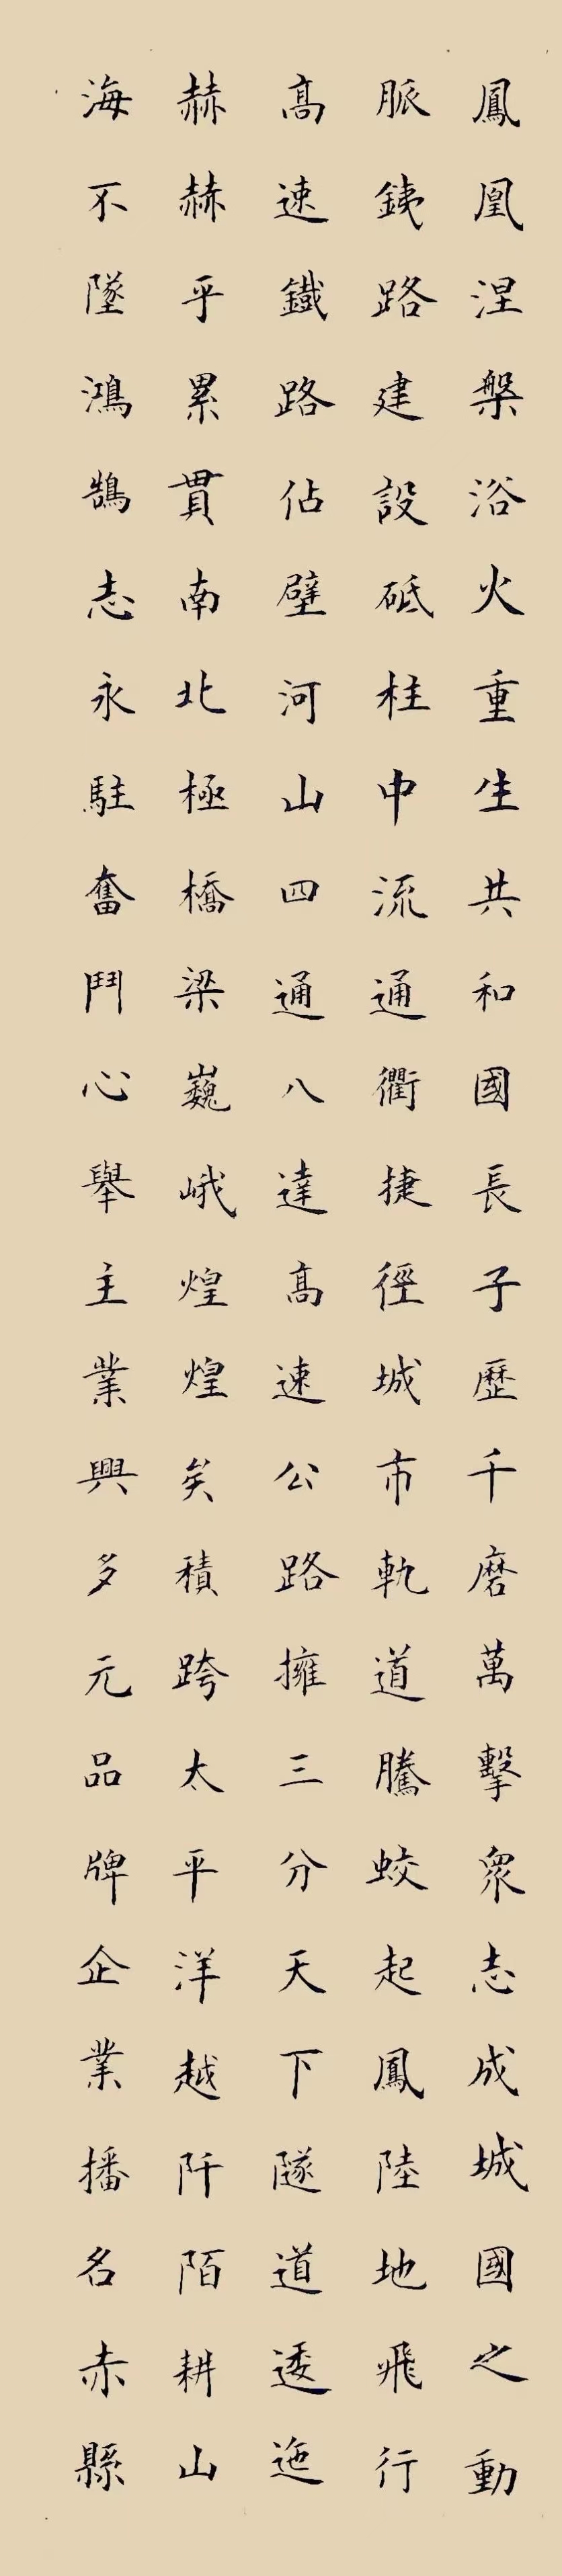 鳳凰涅槃浴火重生共和國長子歷千磨萬擊眾志成城國之動
脈銕路建設砥柱中流通衢捷徑城市軌道騰蛟起鳳陸地飛行
高速鐵路佔壁河山四通八達高速公路擁三分天下隧道逶迤
赫赫乎累貫南北極橋梁巍峨煌煌矣積跨太平洋越阡陌耕山
海不墜鴻鵠志永駐奮鬥心舉主業興多元品牌企業播名赤縣